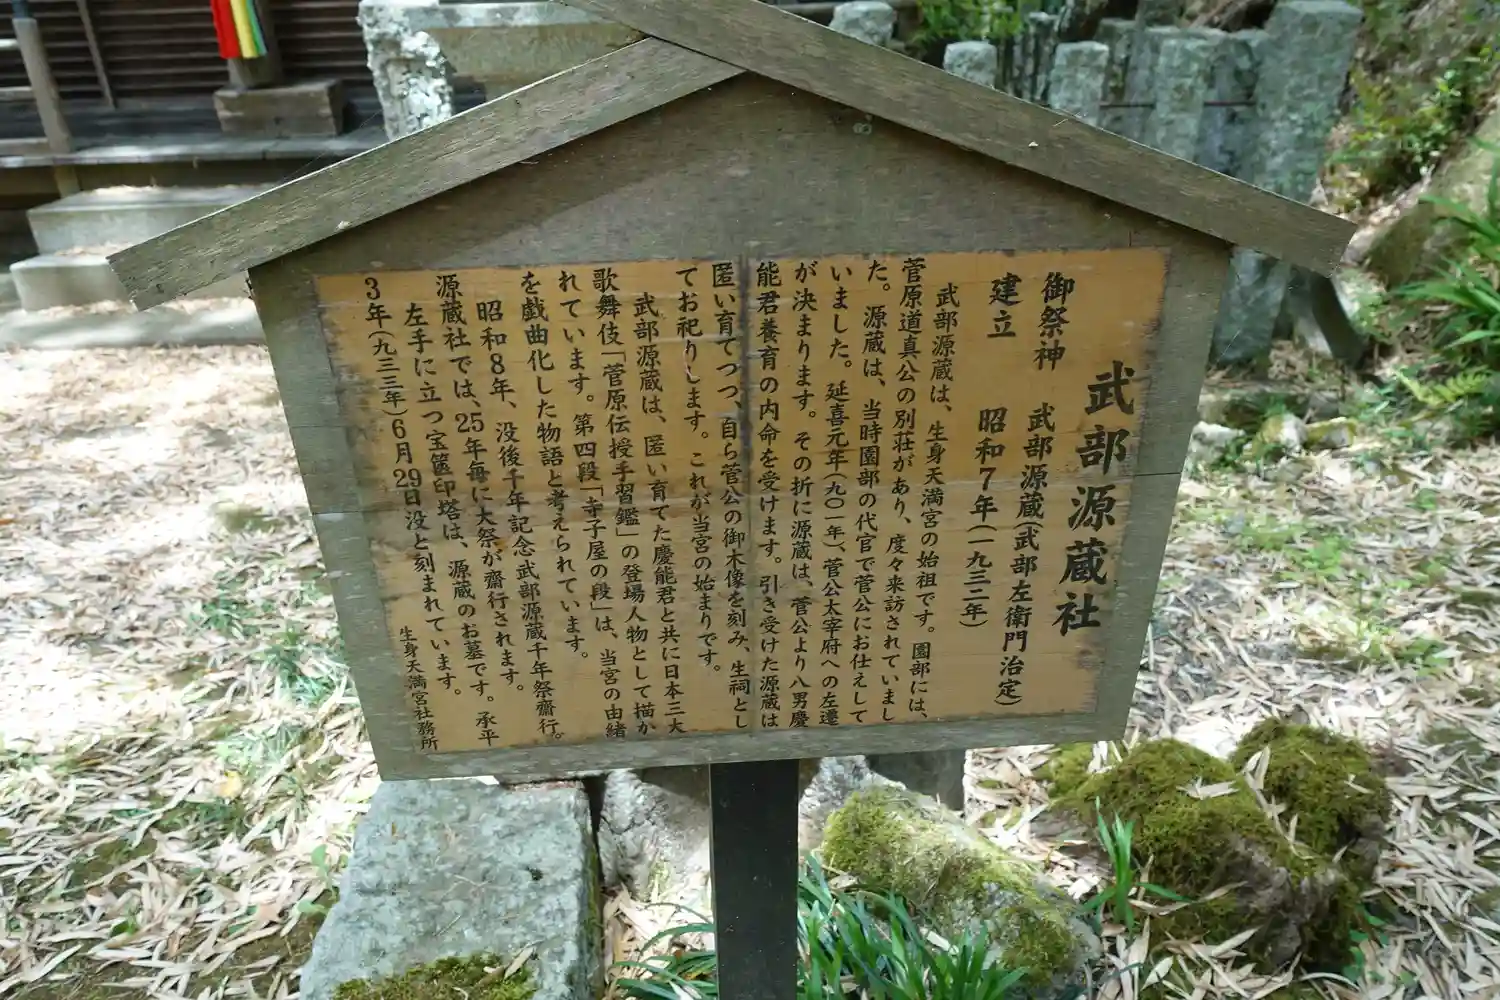 武部源蔵社
御祭神 武部源蔵(武部左衛門治定)
建立 昭和7年(一九三二年)
武部源蔵は、生身天満宮の始祖です。園部には、
菅原道真公の別荘があり、度々来訪されていまし
た。源蔵は、当時園部の代官で菅公にお仕えして
いました。延喜元年(九〇一年)、菅公太宰府への左遷
が決まります。その折に源蔵は、菅公より八男慶
能君養育の内命を受けます。引き受けた源蔵は
匿い育てつつ、自ら菅公の御木像を刻み、生祠とし
てお祀りします。これが当宮の始まりです。
武部源蔵は、匿い育てた慶能君と共に日本三大
歌舞伎「菅原伝授手習鑑」の登場人物として描か
れています。第四段「寺子屋の段」は、当宮の由緒
を戯曲化した物語と考えられています。
昭和8年、没後千年記念武部源蔵千年祭齋行。
源蔵社では、25年毎に大祭が齋行されます。
左手に立つ宝篋印塔は、源蔵のお墓です。承平
3年(九三三年)6月29日没と刻まれています。
生身天満宮社務所